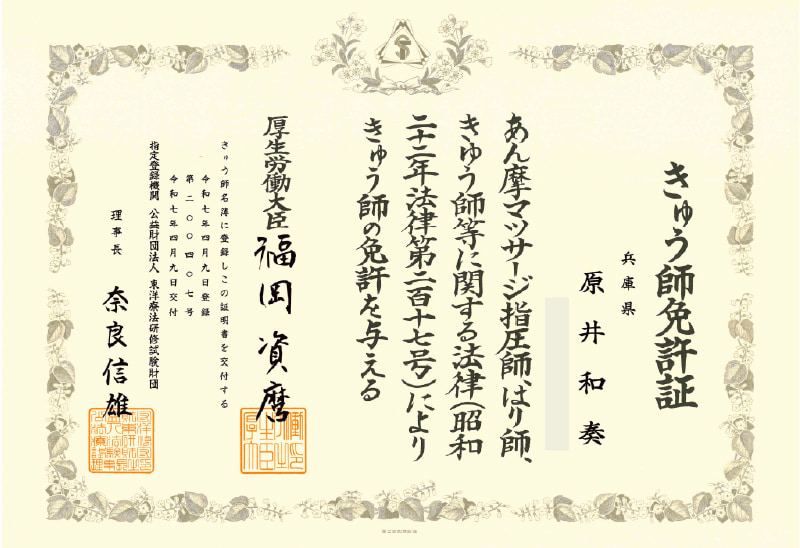 きゅう師免許証
兵庫県
原井和奏
あん摩マツサージ指圧師、はり師、
きゆう師等に関する法律(昭和
二十二年法律第二百十七号)により
きゅう師の免許を与える
厚生労働大臣 福岡資麿
きゅう師名簿に登録しこの証明書を交付する
令和七年四月九日登録
第二〇〇四〇七号
令和七年四月九日交付
指定登録機関 公益財団法人 東洋療法研修試験財団
理事長 奈良信雄